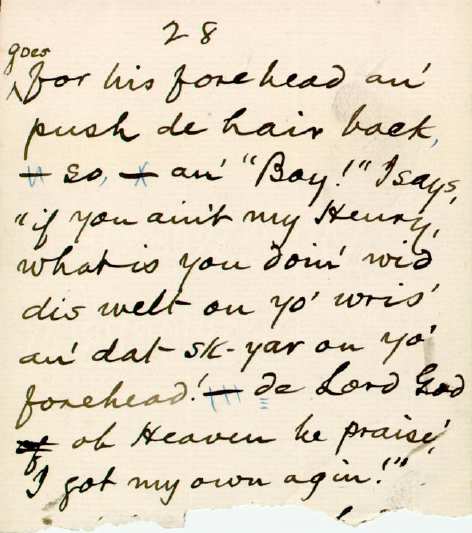 28
goes
for his forehead an'
push de hair back,
— so, — an' "Boy!" I says,
"if you ain't my Henry,
what is you doin' wid
dis welt on yo' wris'
an' dat sk-yar on yo'
forehead! — de Lord God
of ob Heaven be praise',
I got my own agin!"